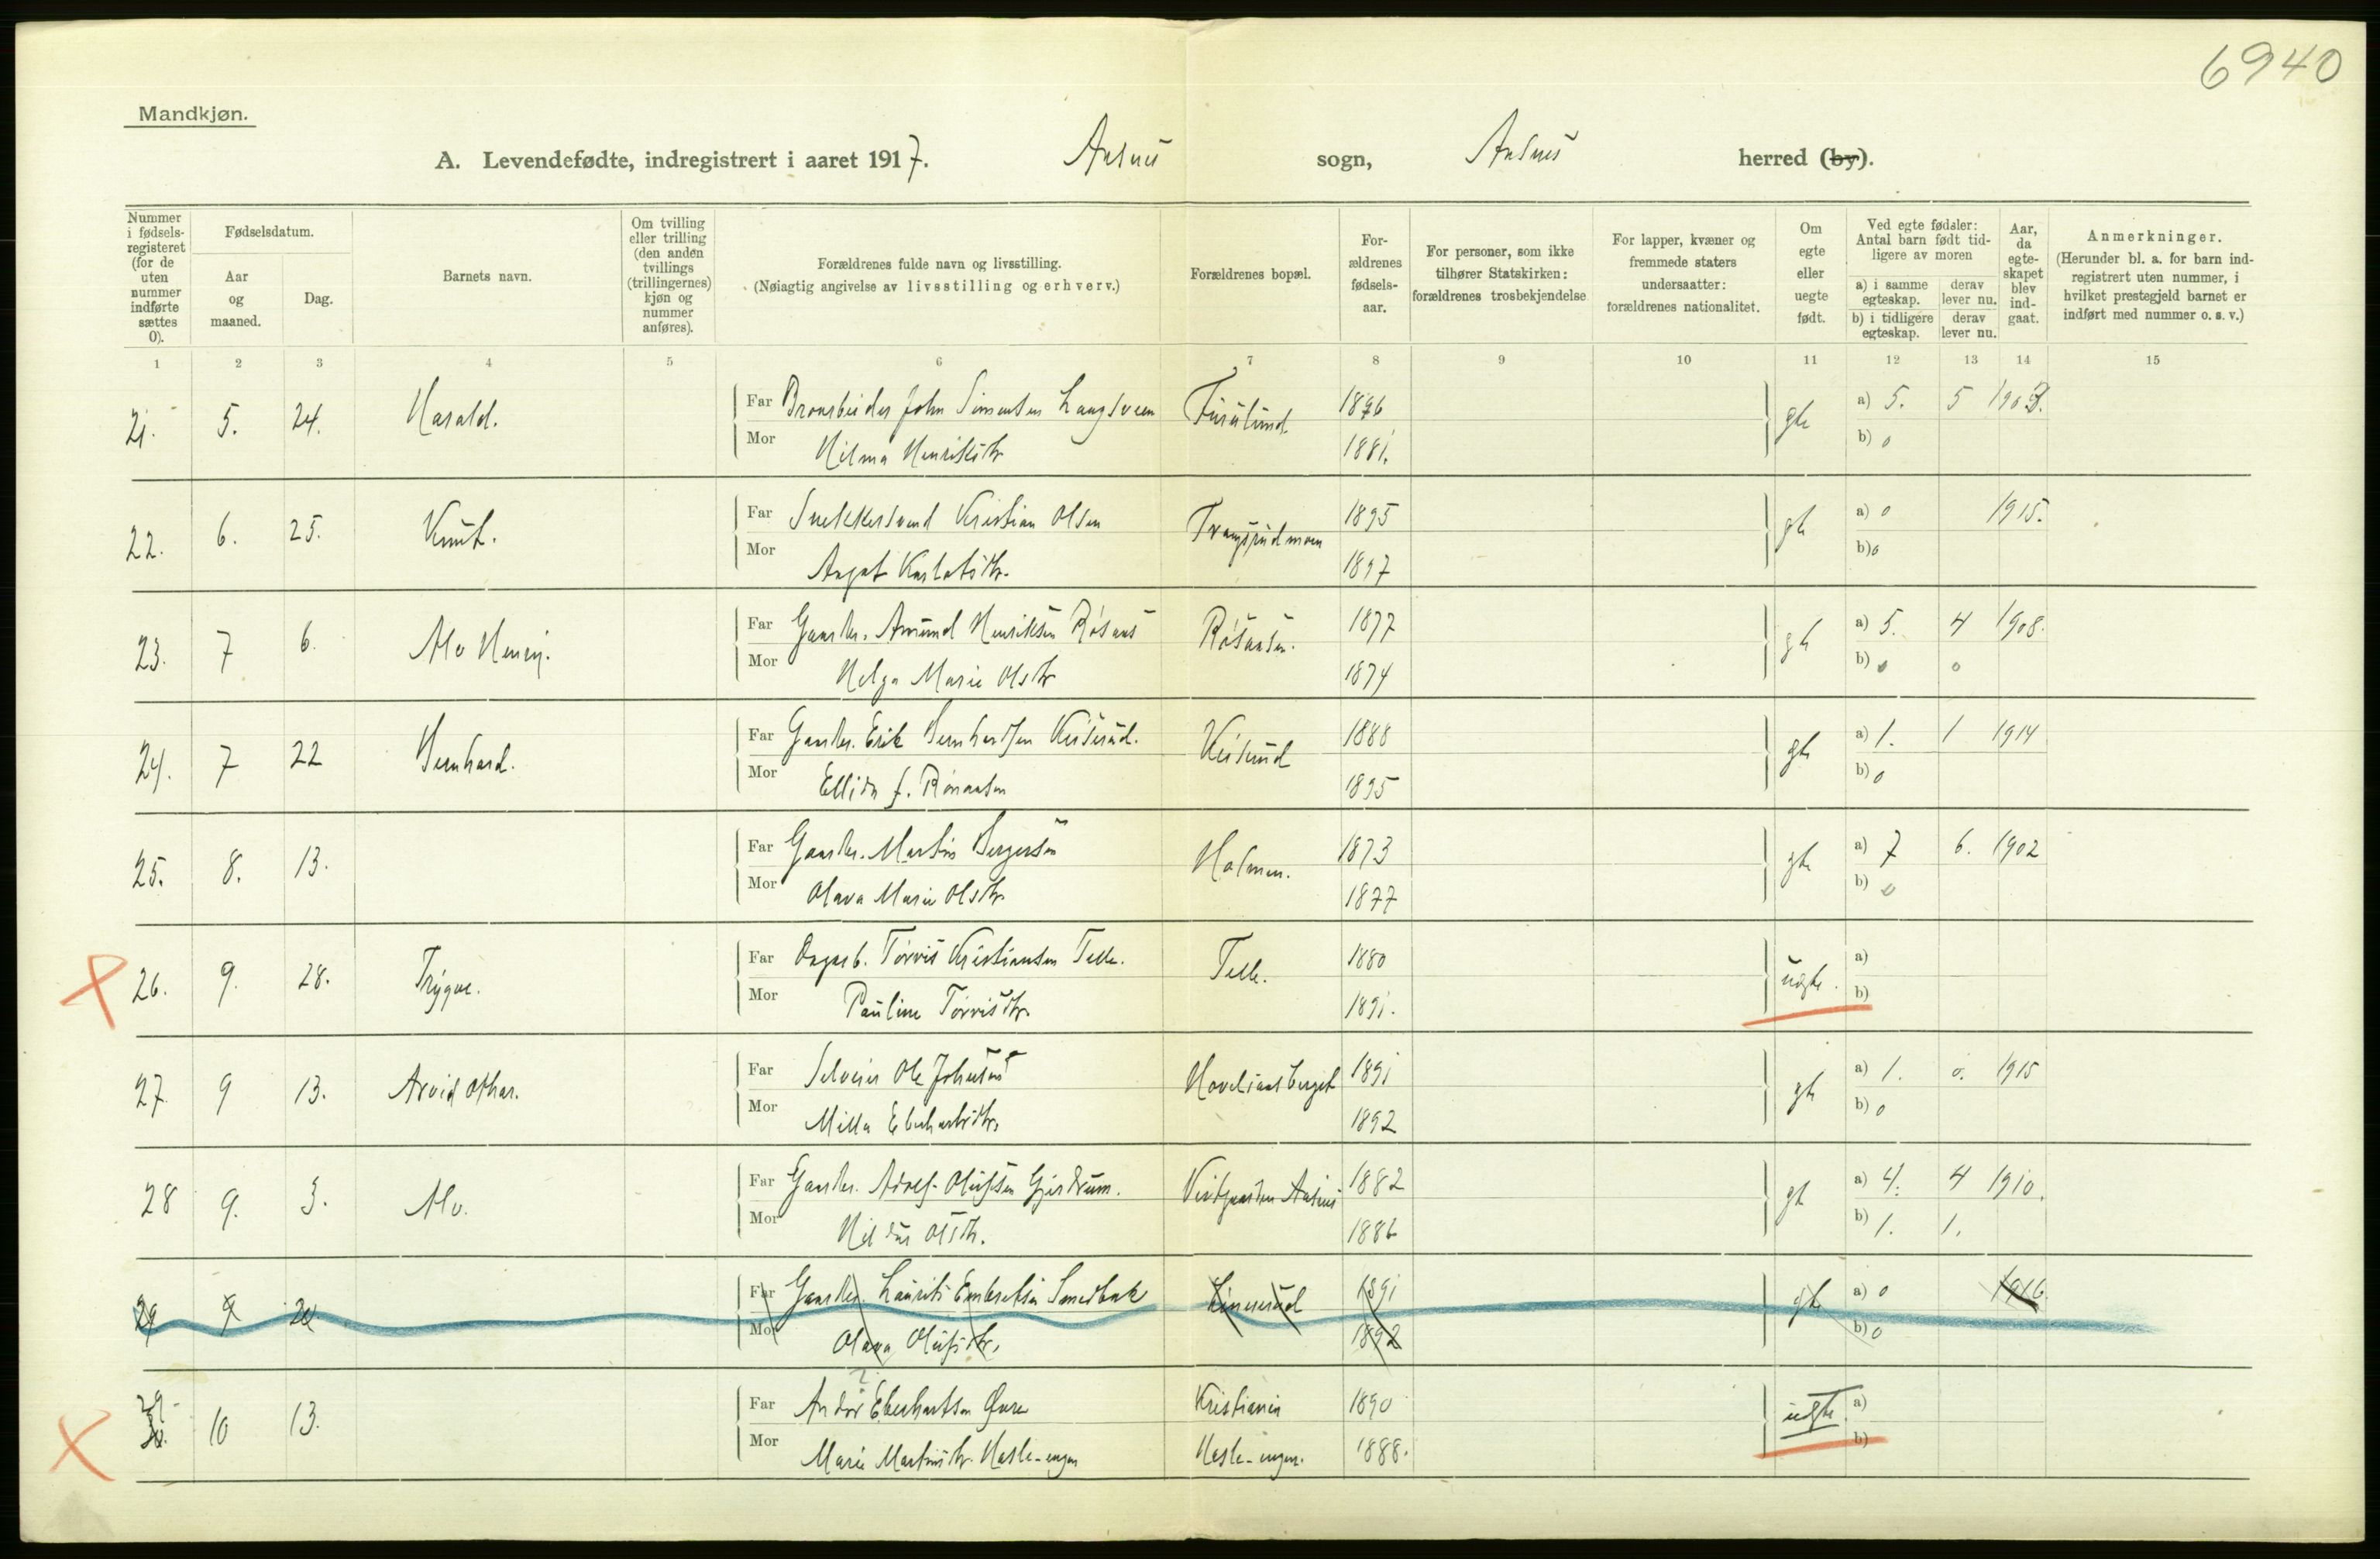 6940
Mandkjøn.
A. Levendefødte, indregistrert i aaret 1917. Aasnes sogn, Aasnes herred (by).
Nummer i fødselsregisteret (for de uten nummer indførte sættes 0).
Fødselsdatum.
Aar og maaned.
Dag.
Barnets navn.
Om tvilling eller trilling (den anden tvillings (trillingernes) kjøn og nummer anføres).
Forældrenes fulde navn og livsstilling.
(Nøiagtig angivelse av livsstilling og erhverv.)
Forældrenes bopæl.
Forældrenes fødselsaar.
For personer, som ikke tilhører Statskirken: forældrenes trosbekjendelse
For lapper, kvæner og fremmede staters undersaatter: forældrenes nationalitet.
Om egte eller uegte født.
Ved egte fødsler: Antal barn født tidligere av moren
a) i samme egteskap.
derav lever nu.
b) i tidligere egteskap.
derav lever nu.
Aar, da egteskapet blev indgaat.
Anmerkninger.
(Herunder bl. a. for barn indregistrert uten nummer, i hvilket prestegjeld barnet er indført med nummer o. s. v.)
1 2 3 4 5 6 7 8 9 10 11 12 13 14 15
21. 5. 24. Harald. Far John Simensen Langsveen Furulund. 1876 gte a) 5. 5 1903.
Mor Hilma Henriksdtr 1881. b) 0
22. 6. 25. Knut. Far Snekkersvend Kristian Olsen 1895 gte a) 0 1915.
Mor Aagot 1897 b) 0
23. 7 6. Alv Henry. Far Gaardbr. Amund Henriksen Røsaas Røsaasen. 1877 gte a) 5. 4 1908.
Mor Helga Marie Olsdtr 1874 b) 0 0
24. 7 22 Bernhard. Far Gaardbr. Erik Bernhardsen Keiserud. Keiserud 1888 gte a) 1. 1 1914
Mor Ellida f. 1895 b) 0
25. 8. 13. Far Gaardbr. Martin Bergersen Holmen. 1873 gte a) 7 6. 1902
Mor Olava Marie Olsdtr. 1877 b) 0
26. 9. 28. Trygve. Far Dagarb. Torvis Kristiansen Telle. Telle. 1880 uegte. a)
Mor Pauline Torvisdtr. 1891. b)
27. 9 13. Arvid Othar. Far Ole Johnsen 1891 gte a) 1. 0. 1915
Mor Milla Eberhartsdtr. 1892 b) 0
28 9. 3. Alv. Far Gaardbr. Adolf Olufsen Gjerdrum. Aasnes 1882 gte a) 4. 4 1910.
Mor Hilda Olsdtr. 1886 b) 1. 1.
29 9 20 Far Gaardbr. Laurits Embretsen Smedbak Linnerud 1891 gte a) 0 1916.
Mor Olava Olufsdtr. 1892 b) 0
29. 30. 10 13. Far Andor Eberhartsen Kristiania 1890 uegte a)
Mor Marie Martinsdtr. Hasle-engen Hasle-engen. 1888. b)